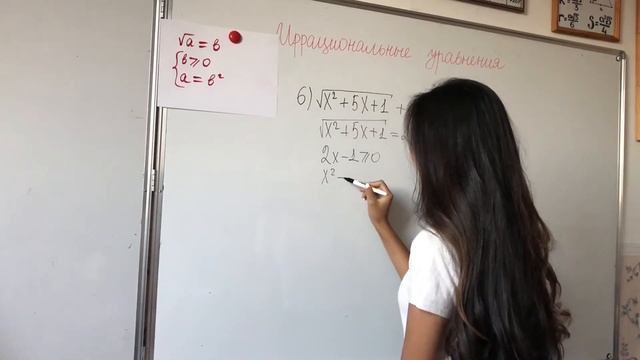 √a = в
в ⩾ 0
a = в²
Иррациональные уравнения
6) √x² + 5x + 1 +
√x² + 5x + 1 = 2
2x - 1 ⩾ 0
x² -